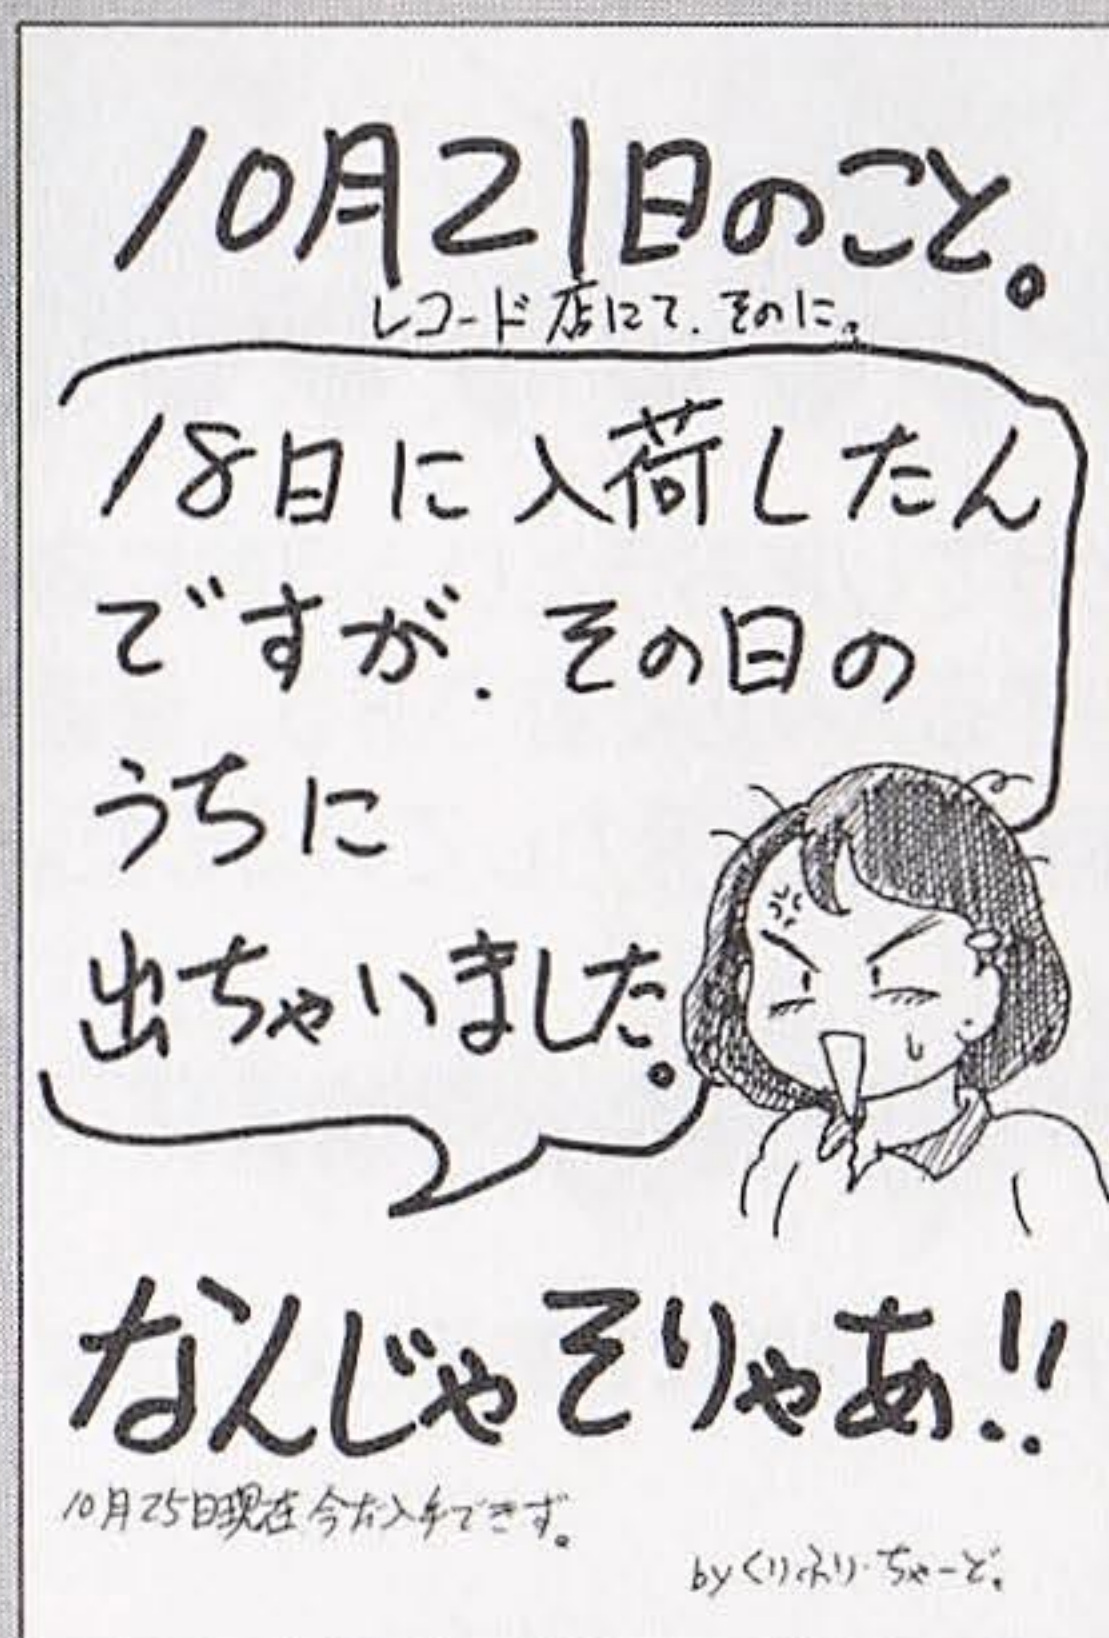 10月21日のこと。
レコード店にて、そのに。
18日に入荷したん
ですが、その日の
うちに
出ちゃいました。
なんじゃそりゃあ!!
10月25日現在今だ入手できず。
byくりふり・ちゃーど。